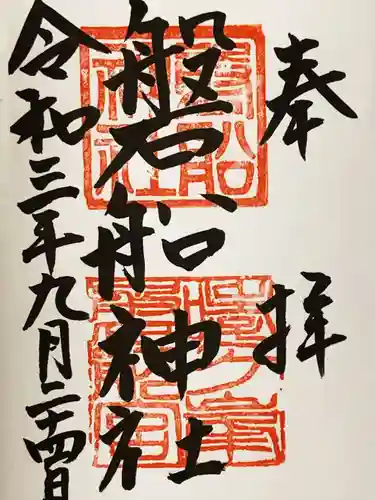 奉拝
磐船神社
令和三年九月二十四日